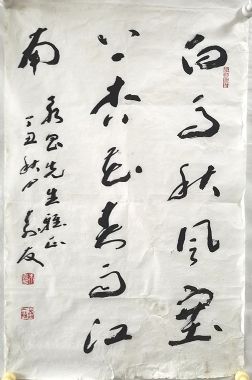 白马秋风塞
上杏花春雨江
南
先生雅正
丁丑秋月 友